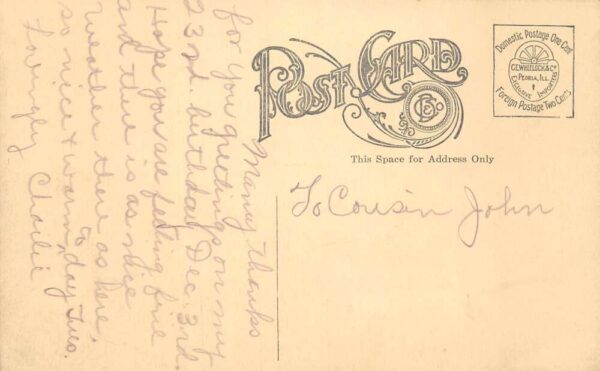 Many thanks
for you greetings on my
23rd birthday Dec. 3rd.
Hope you are feeling fine
and there is as nice
weather there as here,
so nice & warm today, Tues.
Lovingly Charlie
POST CARD
This Space for Address Only
To Cousin John
Domestic Postage One Cent
C.E. WHEELOCK & Co
PEORIA, ILL.
EXCLUSIVE IMPORTERS
Foreign Postage Two Cents